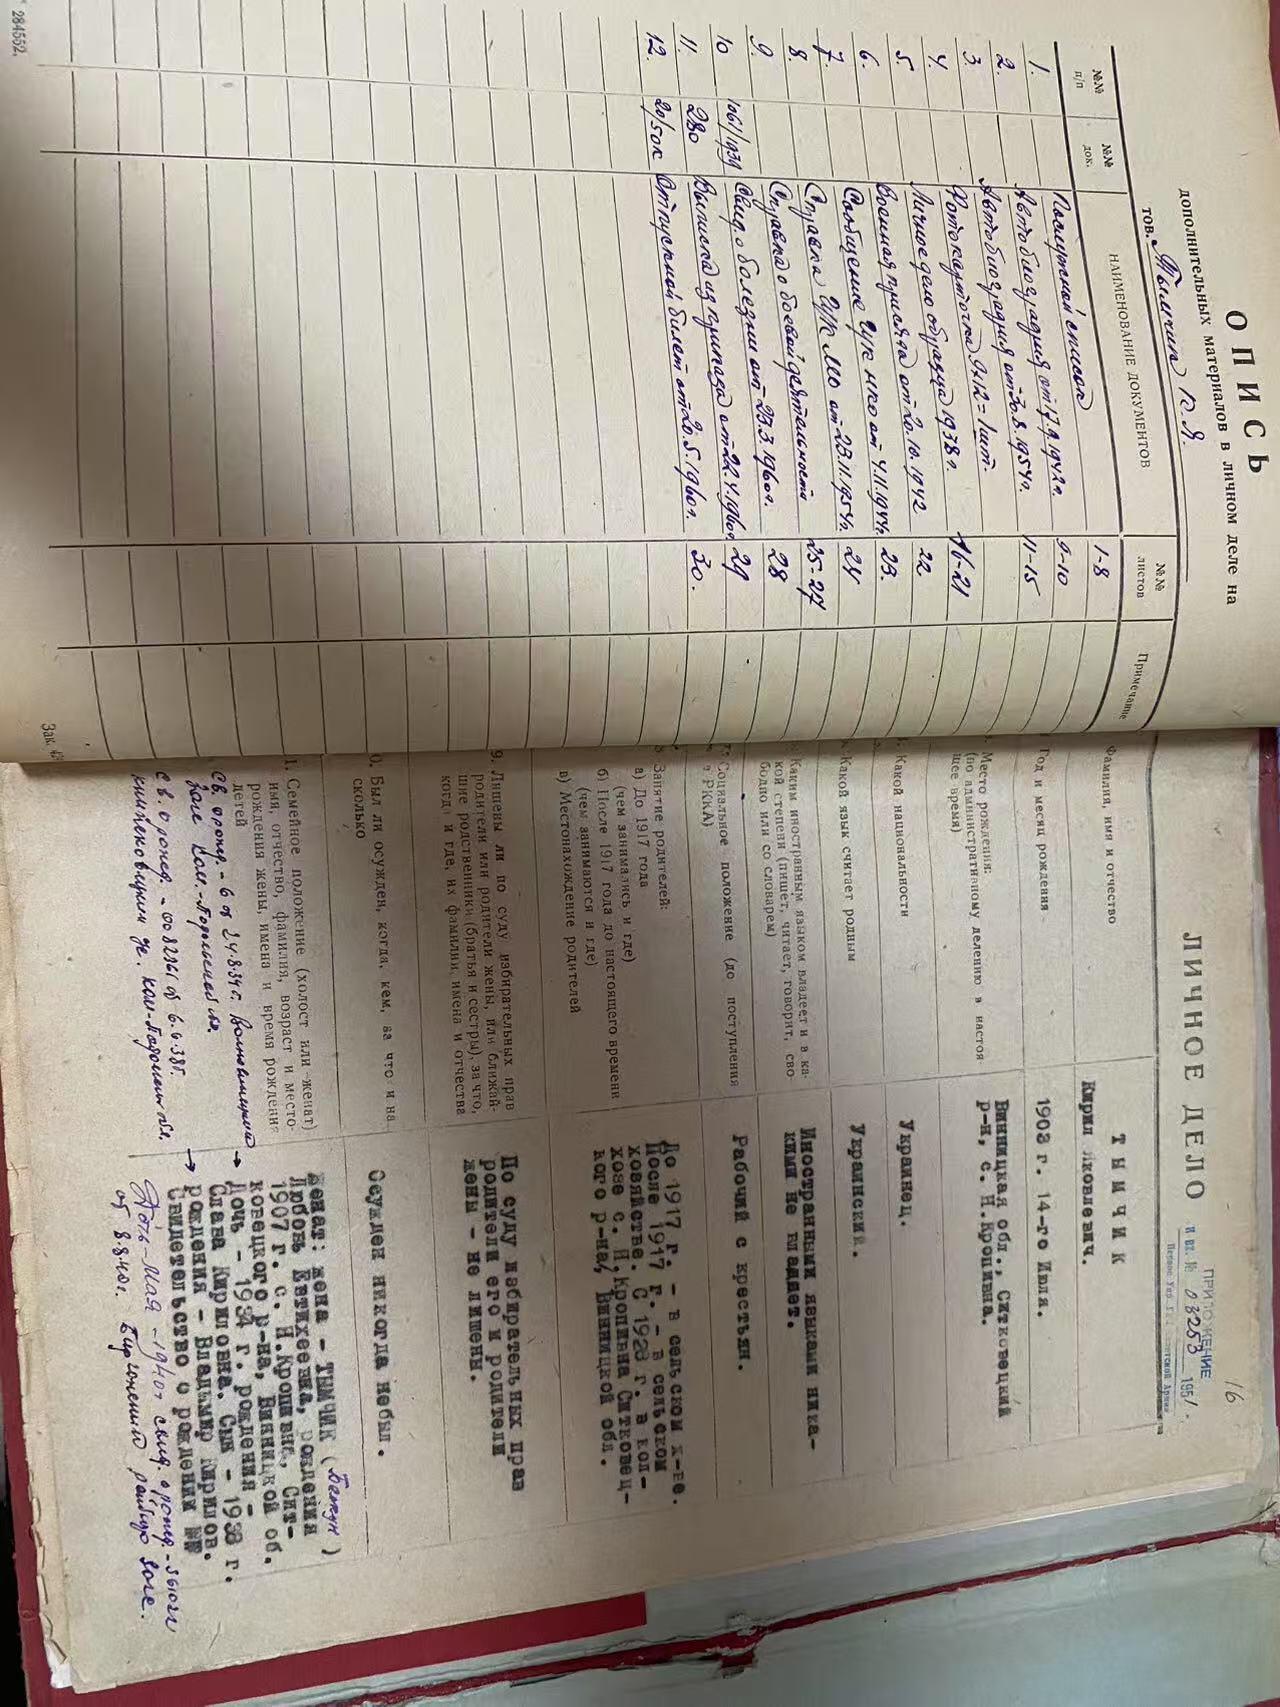 ОПИСЬ
дополнительных материалов в личном деле на
тов. Тымчик К.Я.
№№ п/п
№№ док.
НАИМЕНОВАНИЕ ДОКУМЕНТОВ
№№ листов
Примечание
1. Послужной список 1-8
2. Автобиография от 17.9.1942г. 9-10
3 Автобиография от 30.8.1954г. 11-15
4. Фотокарточка 9х12=1шт.
5. Личное дело образца 1938г. 16-21
6. Военная присяга от 20.10.1942 22
7. Сообщение ГУК НКО от 4.11.1944г. 23.
8. Справка ГУК МО от 23.11.1954г. 24
9. Справка о боевой деятельности 25-27
10 1061/939 Свид. о болезни от 23.3.1960г. 28
11. 280 Выписка из приказа от 22.4.1960г. 29
12. 20/50к Отпускной билет от 20.5.1960г. 30.
284552.
Зак.
16
ПРИЛОЖЕНИЕ
к вх. № 03253 1951 г.
ЛИЧНОЕ ДЕЛО
Фамилия, имя и отчество
ТЫМЧИК
Кирил Яковлевич.
Год и месяц рождения
1908 г. 14-го Июля.
Место рождения:
(по административному делению в настоя
щее время)
Винницкая обл., Ситковецкий
р-н, с. Н.Кропивна.
Какой национальности
Украинец.
Какой язык считает родным
Украинский.
Каким иностранным языком владеет и в ка-
кой степени (пишет, читает, говорит, сво-
бодно или со словарем)
Иностранными языками ника-
кими не владеет.
Социальное положение (до поступления
в РККА)
Рабочий с крестьян.
Занятие родителей:
а) До 1917 года
(чем занимались и где)
б) После 1917 года до настоящего времени
(чем занимаются и где)
в) Местонахождение родителей
До 1917 г. - в сельском х-ве.
После 1917 г. - в сельском
хозяйстве. С 1928 г. в кол-
хозе с. Н.Кропивна Ситковец-
кого р-на, Винницкой обл.
9. Лишены ли по суду избирательных прав
родители или родители жены, или ближай-
шие родственники (братья и сестры), за что,
когда и где, их фамилии, имена и отчества
По суду избирательных прав
родители его и родители
жены - не лишены.
0. Был ли осужден, когда, кем, за что и на
сколько
Осужден никогда небыл.
1. Семейное положение (холост или женат)
имя, отчество, фамилия, возраст и место-
рождения жены, имена и время рождения
детей
Женат: жена - ТЫМЧИК
Любовь Евтихеевна, рождения
1907 г. с. Н.Кропивна, Сит-
ковецкого р-на, Винницкой об.
Дочь - 1934 г. рождения -
Слава Кириловна. Сын - 1938 г.
рождения - Владимир Кирилов.
Свидетельство о рождении №№
Св. о рожд. - 6 от 24.8.34г.
Кам.-Подольской обл.
Св. о рожд. - 0082261 от 6.6.38г.
Кам-Подольской обл.
Дочь - Мая - 1940г свид. о рожд. -
от 8.8.40г.